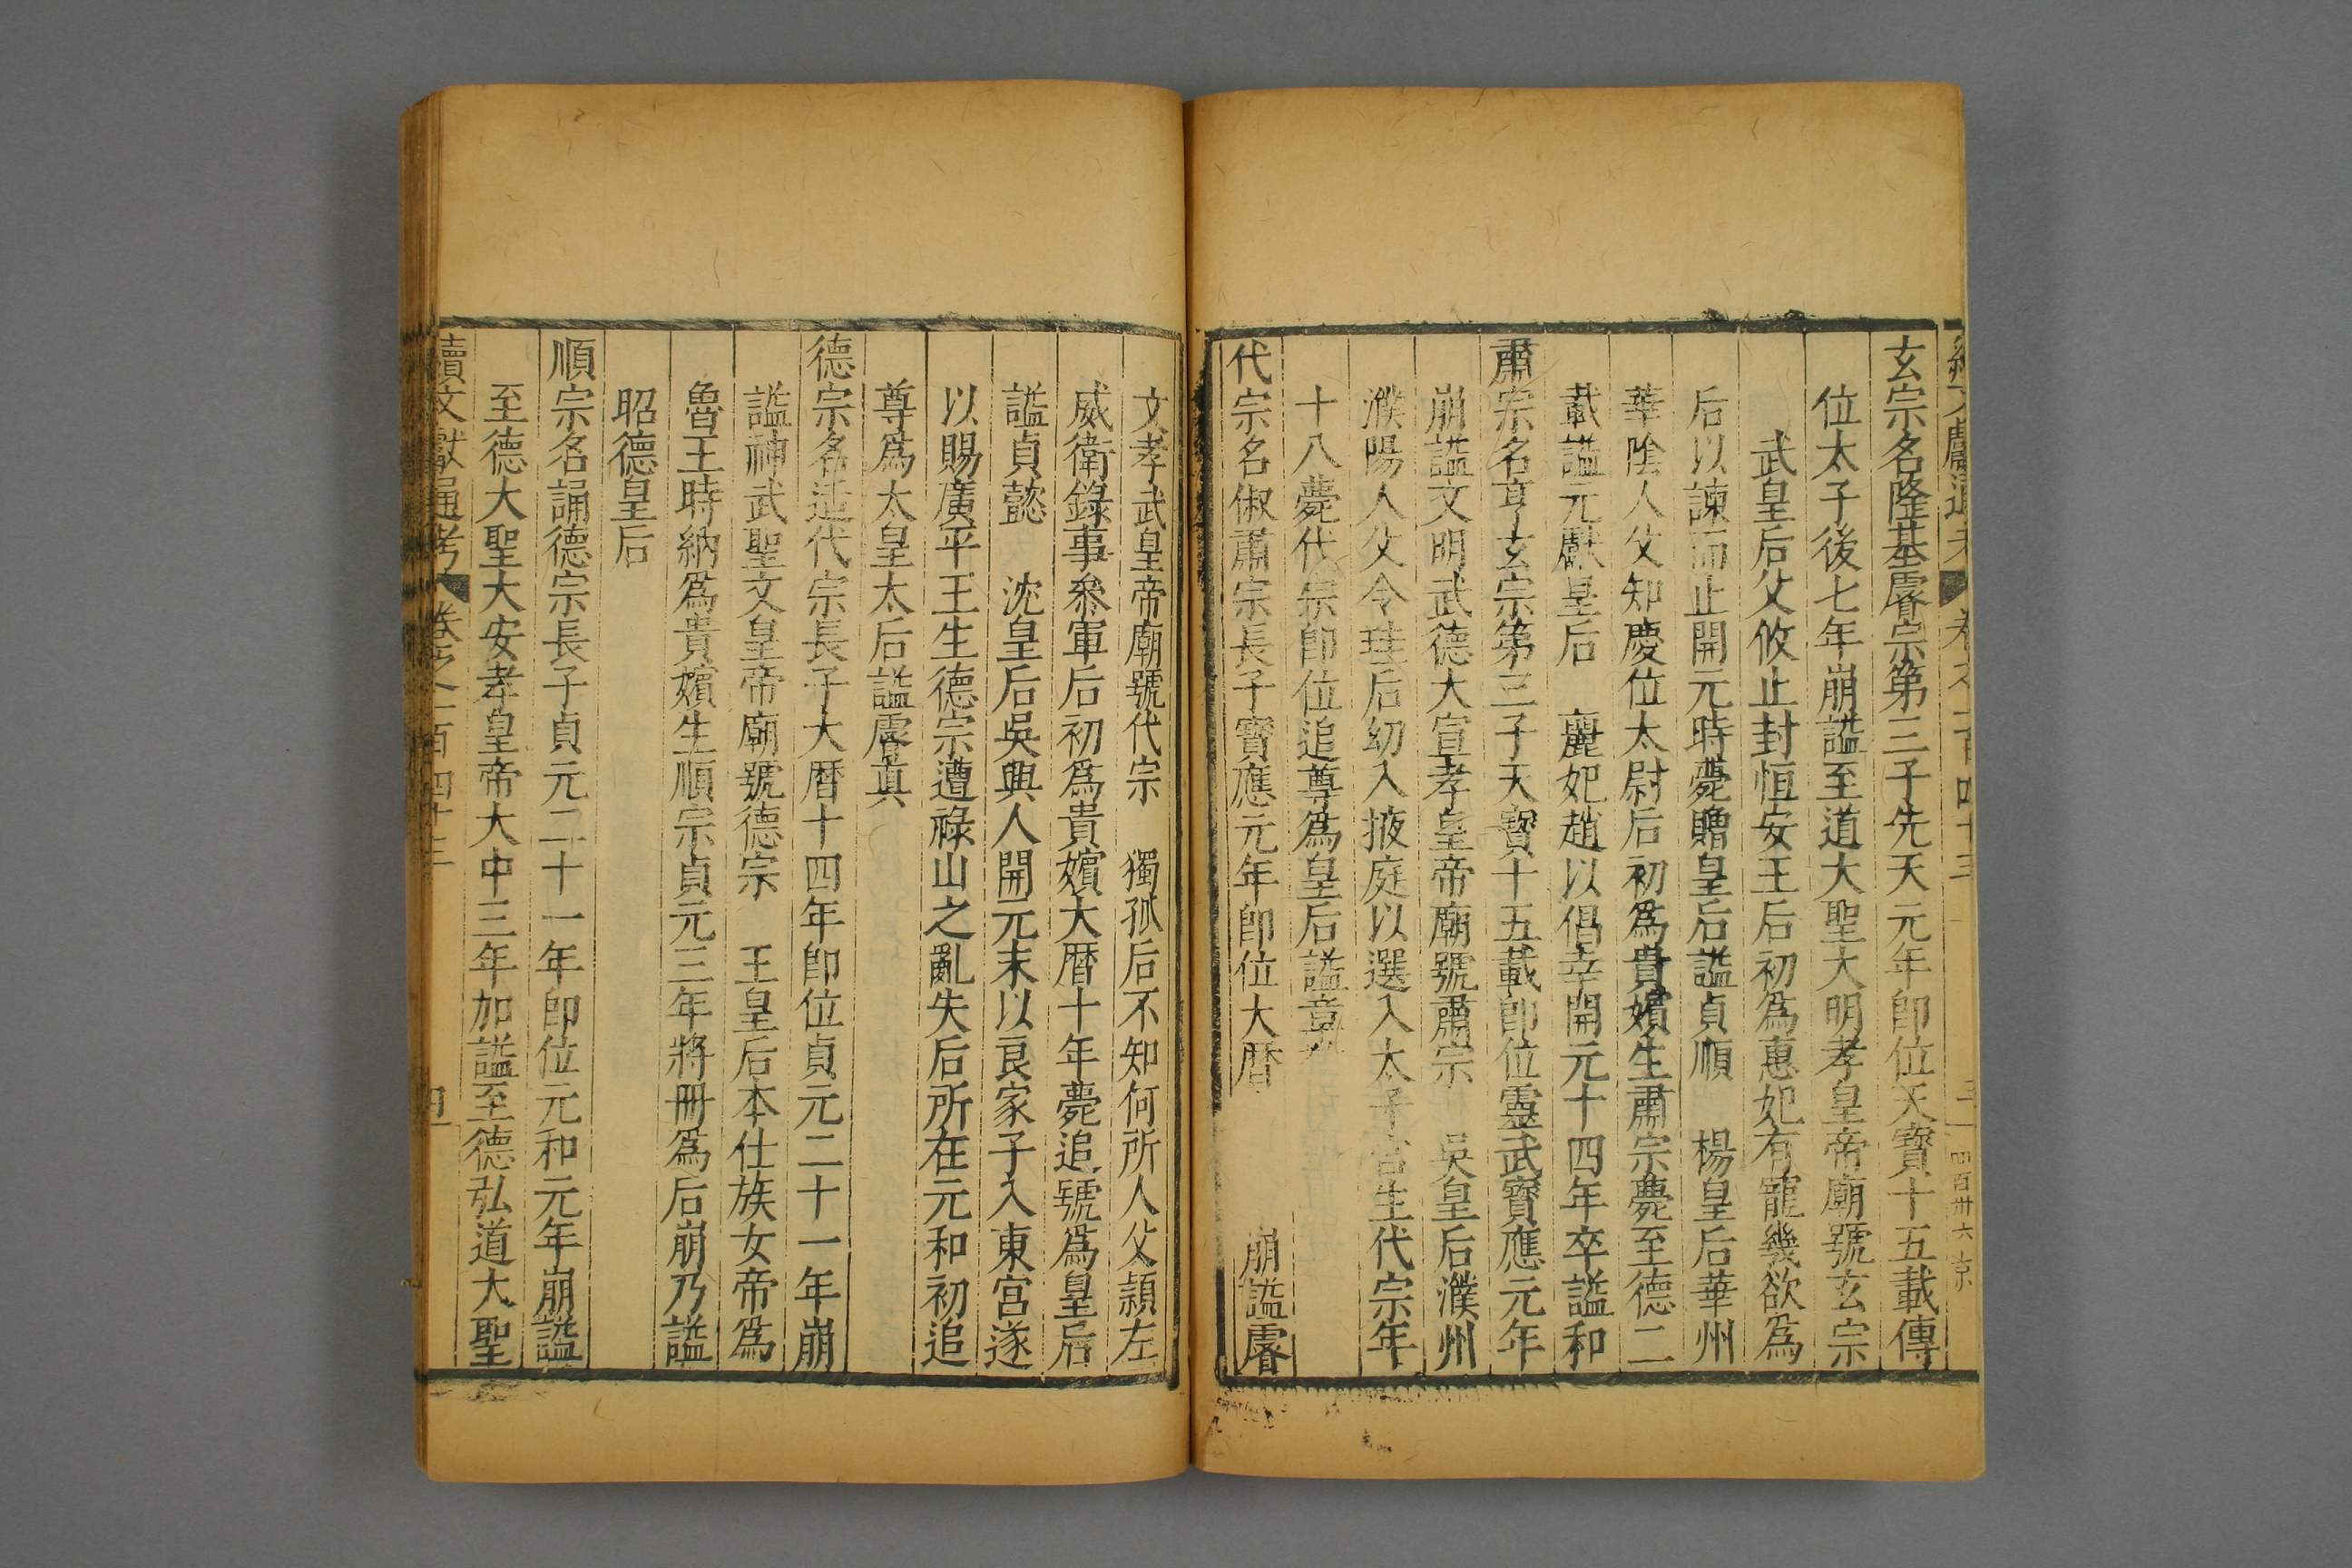 玄宗名隆基睿宗第三子先天元年即位天寶十五載傳
位太子後七年崩謚至道大聖大明孝皇帝廟號玄宗
武皇后父攸止封恒安王后初為惠妃有寵幾欲為
后以諫而止開元時薨贈皇后謚貞順 楊皇后華州
華陰人父知慶位太尉后初為貴嬪生肅宗薨至德二
載謚元獻皇后 麗妃趙以倡幸開元十四年卒謚和
肅宗名亨玄宗第三子天寶十五載即位靈武寶應元年
崩謚文明武德大宣孝皇帝廟號肅宗 吳皇后濮州
濮陽人父令珪后幼入掖庭以選入太子宮生代宗年
十八薨代宗即位追尊為皇后謚章
代宗名俶肅宗長子寶應元年即位大曆 崩謚睿
文孝武皇帝廟號代宗 獨孤后不知何所人父穎左
威衛錄事參軍后初為貴嬪大曆十年薨追號為皇后
謚貞懿 沈皇后吳興人開元末以良家子入東宮遂
以賜廣平王生德宗遭祿山之亂失后所在元和初追
尊為太皇太后謚睿真
德宗名适代宗長子大曆十四年即位貞元二十一年崩
謚神武聖文皇帝廟號德宗 王皇后本仕族女帝為
魯王時納為貴嬪生順宗貞元三年將冊為后崩乃謚
昭德皇后
順宗名誦德宗長子貞元二十一年即位元和元年崩謚
至德大聖大安孝皇帝大中三年加謚至德弘道大聖
續文獻通考 卷之一百四十三 四